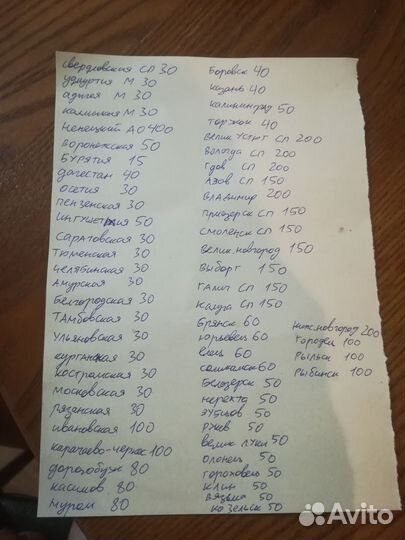 свердловская СП 30
удмуртия М 30
адыгея М 30
калмыкия М 30
ненецкий АО 400
воронежская 50
БУРЯТИЯ 15
дагестан 40
осетия 30
пензенская 30
ингушетия 50
САРАТОВСКАЯ 30
Тюменская 30
челябинская 30
Амурская 30
Белгородская 30
ТАмбовская 30
Ульяновская 30
курганская 30
костромская 30
московская 30
рязанская 30
ивановская 100
карачаево-черкес 100
дорогобуж 80
касимов 80
муром 80
Боровск 40
казань 40
калининград 50
торжок 40
велик УСТЮГ СП 200
Вологда СП 200
Гдов СП 200
АЗОВ СП 150
ВЛАДИМИР 200
приозерск СП 150
смоленск СП 150
велик.новгород 150
ВЫБОРГ 150
ГАЛИЧ СП 150
Калуга СП 150
Брянск 60
юрьевец 60
елец 60
соликамск 60
Белозерск 50
нерехта 50
зубцов 50
ржев 50
велик луки 50
олонец 50
гороховец 50
клин 50
вязьма 50
козельск 50
ниж.новгород 200
городец 100
Рыльск 100
Рыбинск 100
Avito